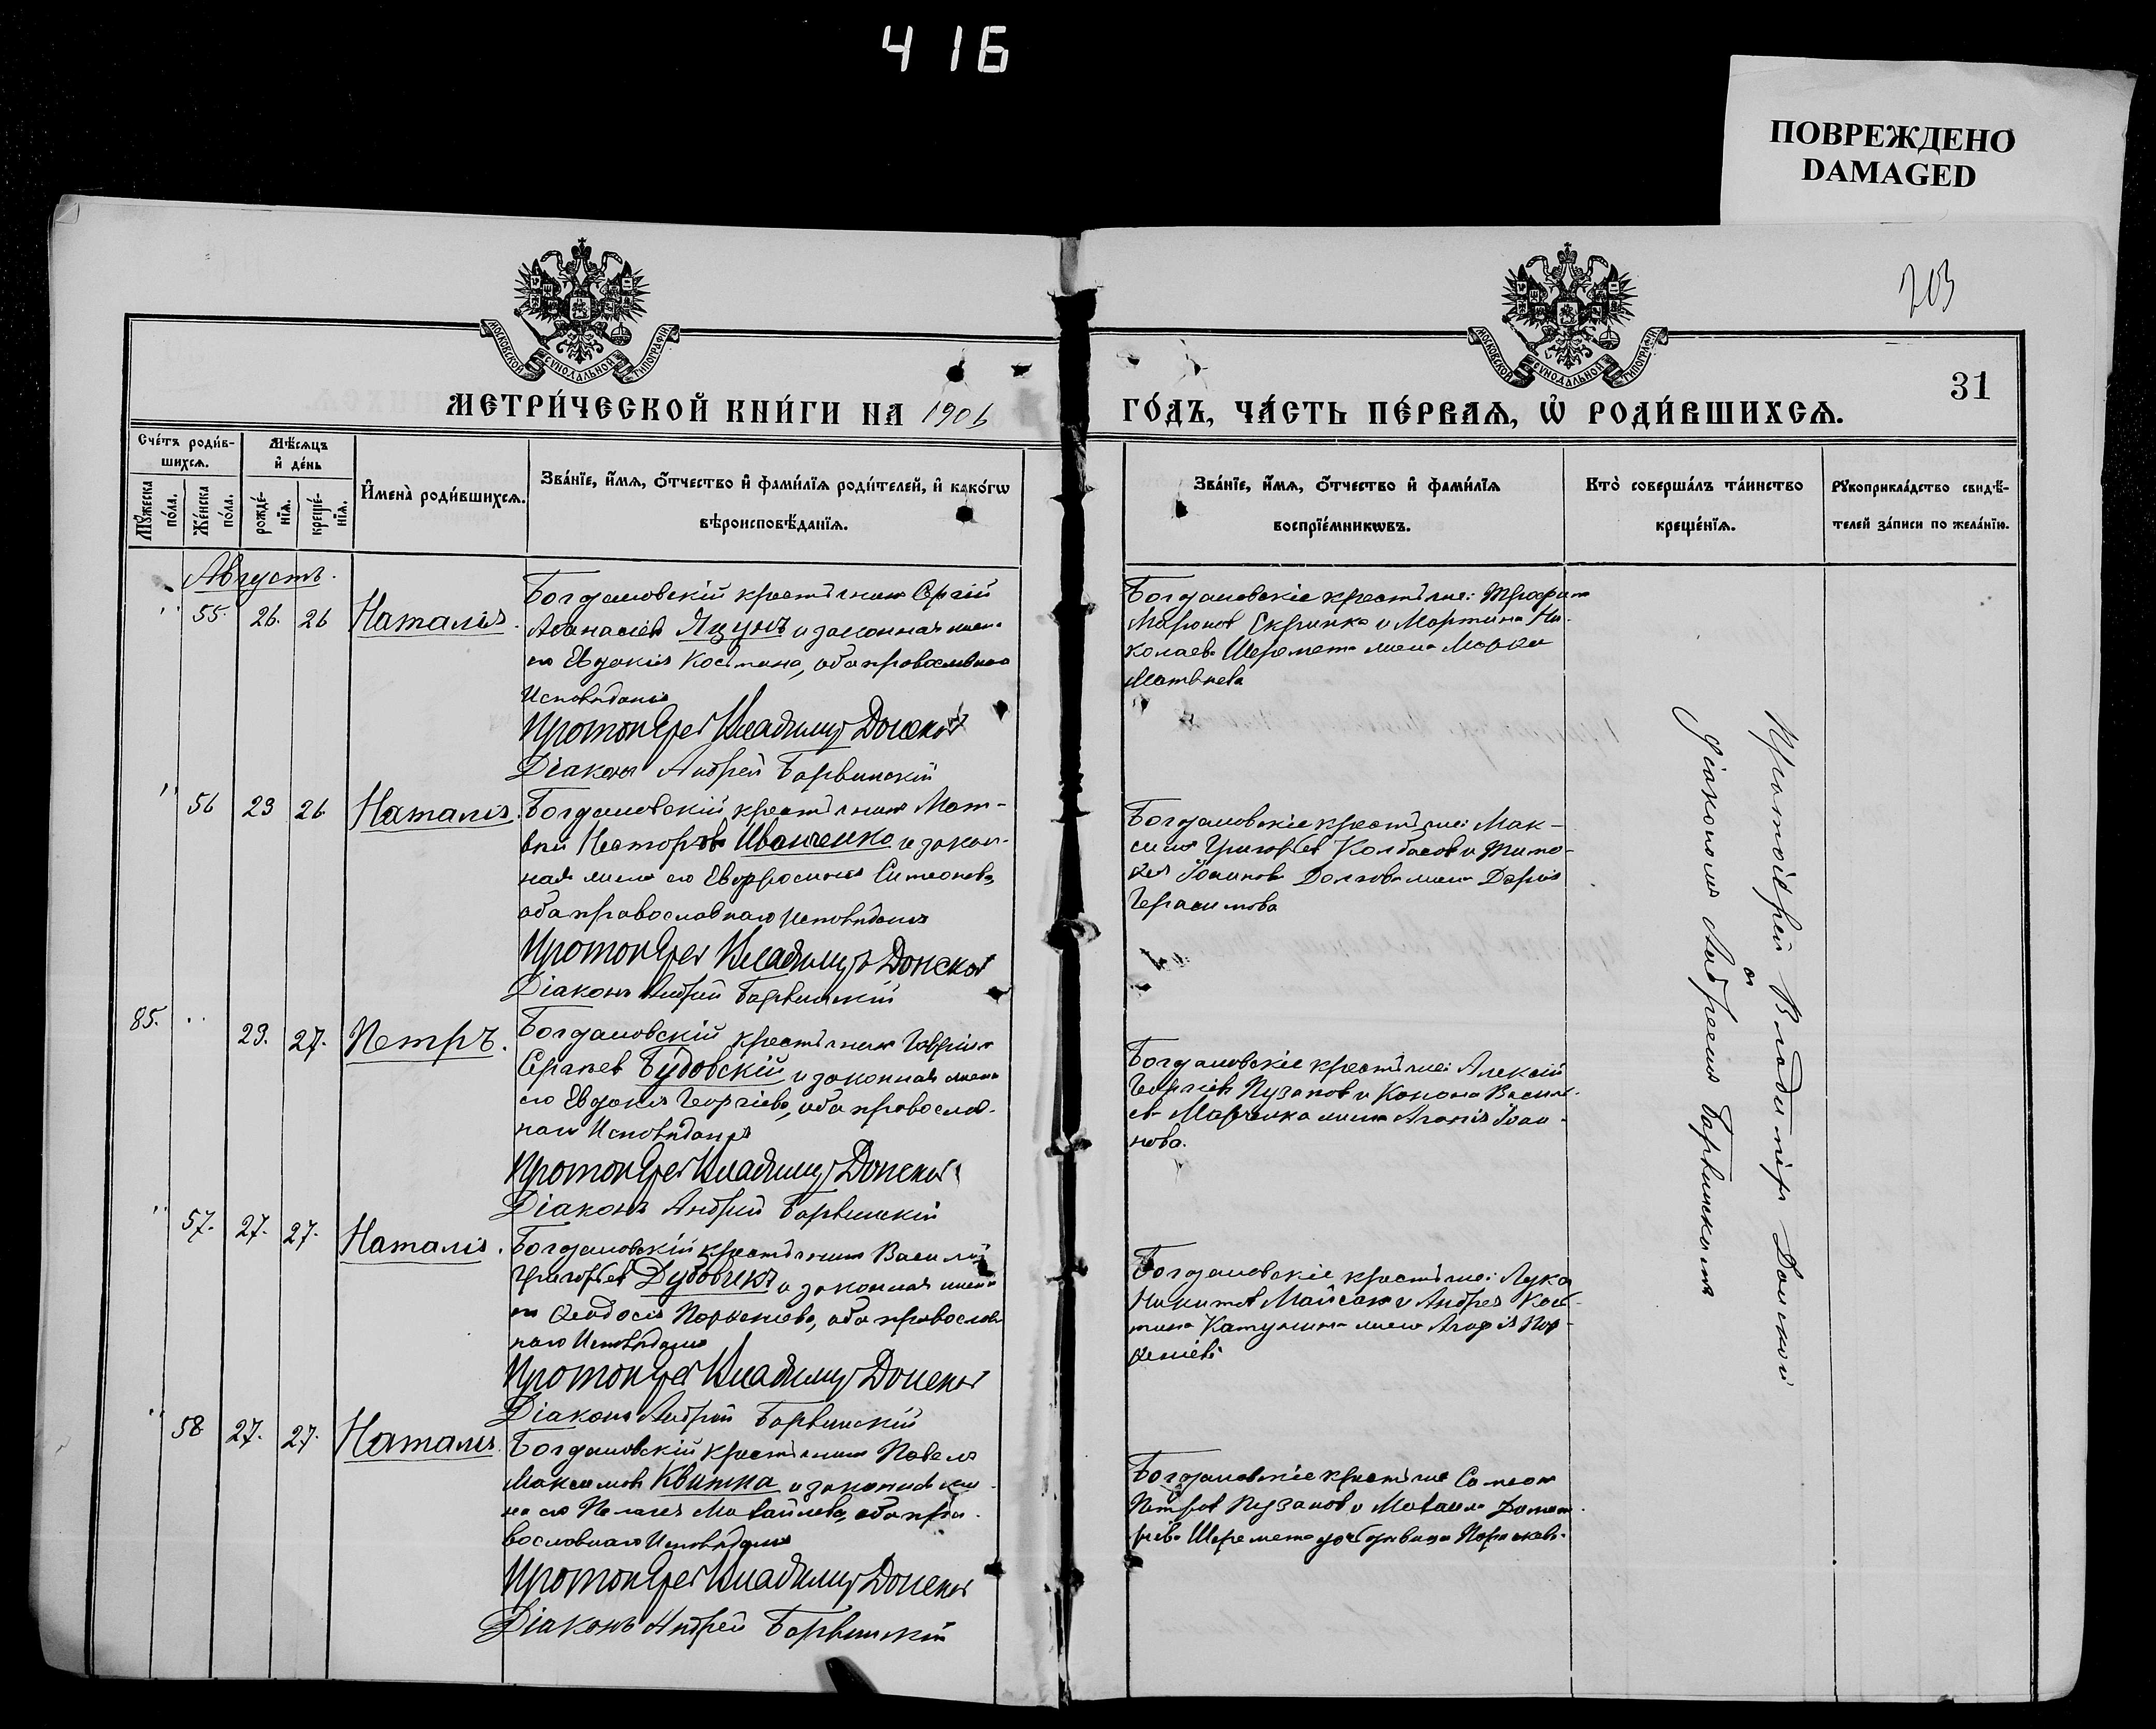 416
ПОВРЕЖДЕНО
DAMAGED
203
31
МОСКОВСКОЙ СѴНОДАЛЬНОЙ ТИПОГРАФІИ
МОСКОВСКОЙ СѴНОДАЛЬНОЙ ТИПОГРАФІИ
МЕТРИ́ЧЕСКОЙ КНИ́ГИ НА 1906
ГО́ДЪ, ЧА́СТЬ ПЕ́РВАѦ, Ѡ҆ РОДИ́ВШИХСѦ.
Сче́тъ роди́в-
шихсѧ.
Мѣ́сѧцъ
и҆ де́нь
Мꙋ́жеска
по́ла.
Же́нска
по́ла.
рожде́-
нїѧ.
креще́-
нїѧ.
И҆мена̀ роди́вшихсѧ.
Зва́нїе, и҆́мѧ, ѻ҆́тчество и҆ фами́лїѧ роди́телей, и҆ како́гѡ
вѣроисповѣ́данїѧ.
Зва́нїе, и҆́мѧ, ѻ҆́тчество и҆ фами́лїѧ
воспрїе́мникѡвъ.
Кто̀ соверша́лъ та́инство
креще́нїѧ.
Рꙋкоприкла́дство свидѣ́-
телей за́писи по жела́нїю.
Августъ.
" 55. 26. 26 Наталія.
Богдановскій крестьянинъ Сергій
Аѳанасіевъ Яцунъ и законная жена
его Евдокія Костина, оба православнаго
Исповѣданія
Протоіерей Владиміръ Донской
Діаконъ Андрей Барвинскій
Богдановскіе крестьяне: Трофимъ
Скрипка и Мартина Ни-
колаева Шеремета жена
Матѳнева
" 56 23 26 Наталія.
Богдановскій крестьянинъ Мат-
вѣй Несторовъ Иванченко и закон-
ная жена его Евфросинія Симеонова,
оба православнаго Исповѣданія
Протоіерей Владиміръ Донской
Діаконъ Андрей Барвинскій
Богдановскіе крестьяне: Мак-
симъ Григорьевъ Колбасовъ и Тимо-
ѳея Іоаннова жена Дарія
Герасимова
85. " 23. 27. Петръ.
Богдановскій крестьянинъ Гавріилъ
Сергѣевъ Будовскій и законная жена
его Евдокія Георгіева, оба православ-
наго Исповѣданія
Протоіерей Владиміръ Донской
Діаконъ Андрей Барвинскій
Богдановскіе крестьяне: Алексій
Георгіевъ Пузановъ и Конона Василь-
ева Марченка жена Агафія Іоан-
нова.
" 57. 27. 27. Наталія.
Богдановскій крестьянинъ Василій
Григорьевъ Дубовикъ и законная жена
его Ѳеодосія Порфиріева, оба православ-
наго Исповѣданія
Протоіерей Владиміръ Донской
Діаконъ Андрей Барвинскій
Богдановскіе крестьяне: Лука
Никитовъ Майсакъ и Андрея Кос-
тина жена
" 58 27. 27. Наталія.
Богдановскій крестьянинъ Павелъ
Максимовъ Квитка и законная же-
на его Пелагія Михайлова, оба пра-
вославнаго Исповѣданія
Протоіерей Владиміръ Донской
Діаконъ Андрей Барвинскій
Богдановскіе крестьяне Симеонъ
Петровъ Пузановъ и Михаила
Шеремета дочь дѣвица Параскева.
Протоіерей Владиміръ Донской
съ
діакономъ Андреемъ Барвинскимъ